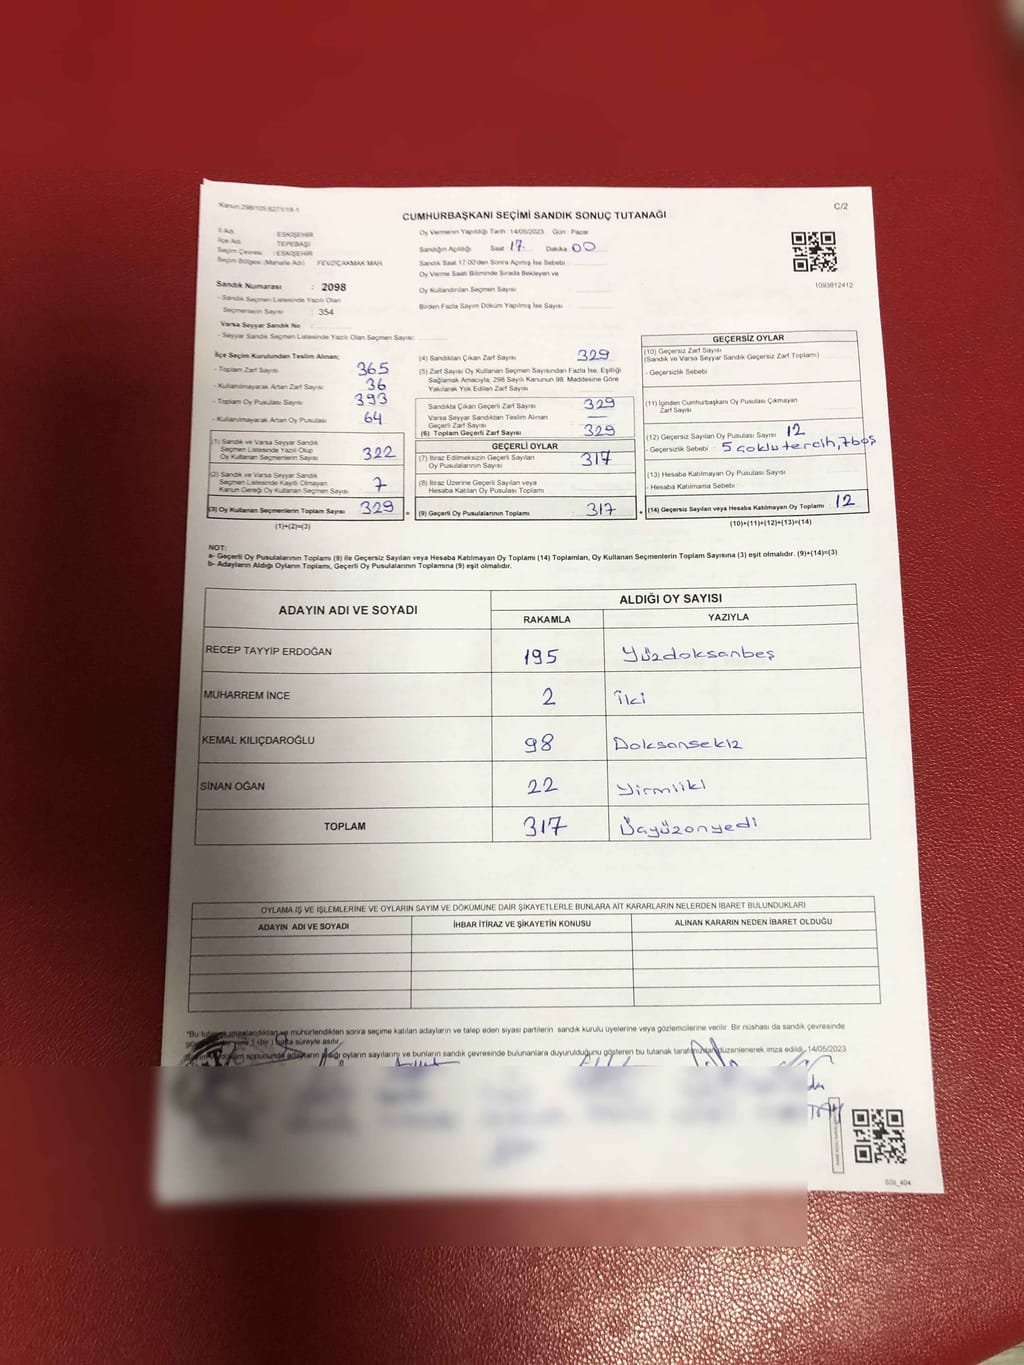 Kanun:298/105,6271/18-1
C/2
CUMHURBAŞKANI SEÇİMİ SANDIK SONUÇ TUTANAĞI
İl Adı : ESKİŞEHİR
İlçe Adı : TEPEBAŞI
Seçim Çevresi : ESKİŞEHİR
Seçim Bölgesi (Mahalle Adı) : FEVZİÇAKMAK MAH.
Sandık Numarası : 2098
- Sandık Seçmen Listesinde Yazılı Olan
Seçmenlerin Sayısı : 354
Varsa Seyyar Sandık No :
- Seyyar Sandık Seçmen Listesinde Yazılı Olan Seçmen Sayısı:
Oy Vermenin Yapıldığı Tarih :14/05/2023 Gün : Pazar
Sandığın Açıldığı Saat 17 Dakika 00
Sandık Saat 17:00'den Sonra Açılmış İse Sebebi
Oy Verme Saati Bitiminde Sırada Bekleyen ve
Oy Kullandırılan Seçmen Sayısı
Birden Fazla Sayım Döküm Yapılmış İse Sayısı
1093812412
İlçe Seçim Kurulundan Teslim Alınan;
- Toplam Zarf Sayısı 365
- Kullanılmayarak Artan Zarf Sayısı 36
- Toplam Oy Pusulası Sayısı 393
- Kullanılmayarak Artan Oy Pusulası 64
(1) Sandık ve Varsa Seyyar Sandık
Seçmen Listesinde Yazılı Olup
Oy Kullanan Seçmenlerin Sayısı 322
(2) Sandık ve Varsa Seyyar Sandık
Seçmen Listesinde Kayıtlı Olmayan
Kanun Gereği Oy Kullanan Seçmen Sayısı 7
(3) Oy Kullanan Seçmenlerin Toplam Sayısı 329
(1)+(2)=(3)
(4) Sandıktan Çıkan Zarf Sayısı 329
(5) Zarf Sayısı Oy Kullanan Seçmen Sayısından Fazla İse, Eşitliği
Sağlamak Amacıyla, 298 Sayılı Kanunun 98. Maddesine Göre
Yakılarak Yok Edilen Zarf Sayısı
Sandıkta Çıkan Geçerli Zarf Sayısı 329
Varsa Seyyar Sandıktan Teslim Alınan
Geçerli Zarf Sayısı —
(6) Toplam Geçerli Zarf Sayısı 329
GEÇERLİ OYLAR
(7) İtiraz Edilmeksizin Geçerli Sayılan
Oy Pusulalarının Sayısı 317
(8) İtiraz Üzerine Geçerli Sayılan veya
Hesaba Katılan Oy Pusulası Toplamı
= (9) Geçerli Oy Pusulalarının Toplamı 317
GEÇERSİZ OYLAR
(10) Geçersiz Zarf Sayısı
(Sandık ve Varsa Seyyar Sandık Geçersiz Zarf Toplamı)
- Geçersizlik Sebebi
(11) İçinden Cumhurbaşkanı Oy Pusulası Çıkmayan
Zarf Sayısı
(12) Geçersiz Sayılan Oy Pusulası Sayısı 12
- Geçersizlik Sebebi 5 çoklu tercih, 7 boş
(13) Hesaba Katılmayan Oy Pusulası Sayısı
- Hesaba Katılmama Sebebi
+ (14) Geçersiz Sayılan veya Hesaba Katılmayan Oy Toplamı 12
(10)+(11)+(12)+(13)=(14)
NOT:
a- Geçerli Oy Pusulalarının Toplamı (9) ile Geçersiz Sayılan veya Hesaba Katılmayan Oy Toplamı (14) Toplamları, Oy Kullanan Seçmenlerin Toplam Sayısına (3) eşit olmalıdır. (9)+(14)=(3)
b- Adayların Aldığı Oyların Toplamı, Geçerli Oy Pusulalarının Toplamına (9) eşit olmalıdır.
ADAYIN ADI VE SOYADI ALDIĞI OY SAYISI
RAKAMLA YAZIYLA
RECEP TAYYİP ERDOĞAN 195 Yüzdoksanbeş
MUHARREM İNCE 2 İki
KEMAL KILIÇDAROĞLU 98 Doksansekiz
SİNAN OĞAN 22 Yirmiiki
TOPLAM 317 Üçyüzonyedi
OYLAMA İŞ VE İŞLEMLERİNE VE OYLARIN SAYIM VE DÖKÜMÜNE DAİR ŞİKAYETLERLE BUNLARA AİT KARARLARIN NELERDEN İBARET BULUNDUKLARI
ADAYIN ADI VE SOYADI İHBAR İTİRAZ VE ŞİKAYETİN KONUSU ALINAN KARARIN NEDEN İBARET OLDUĞU
*Bu tutanak imzalandıktan ve mühürlendikten sonra seçime katılan adayların ve talep eden siyasi partilerin sandık kurulu üyelerine veya gözlemcilerine verilir. Bir nüshası da sandık çevresinde
yere 1 (bir) hafta süreyle asılır.
sonucunda adayların aldığı oyların sayılarını ve bunların sandık çevresinde bulunanlara duyurulduğunu gösteren bu tutanak tarafımızdan düzenlenerek imza edildi. 14/05/2023
SSt_404